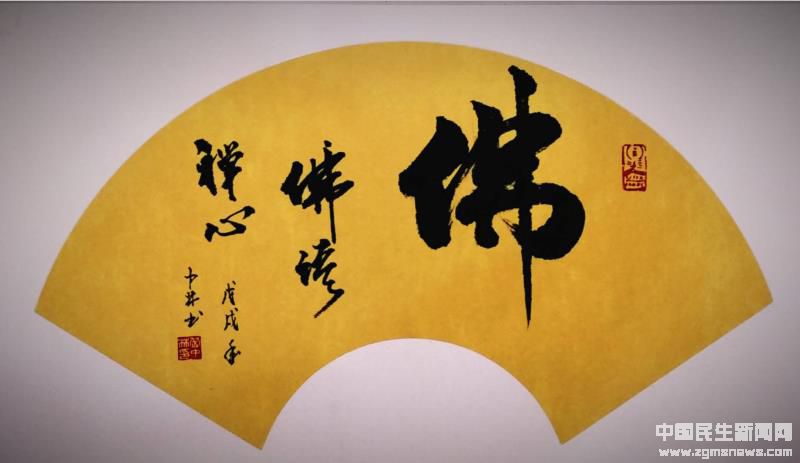 佛
佛语
禅心
戊戌年
中林书
中国民生新闻网
www.zgmsnews.com